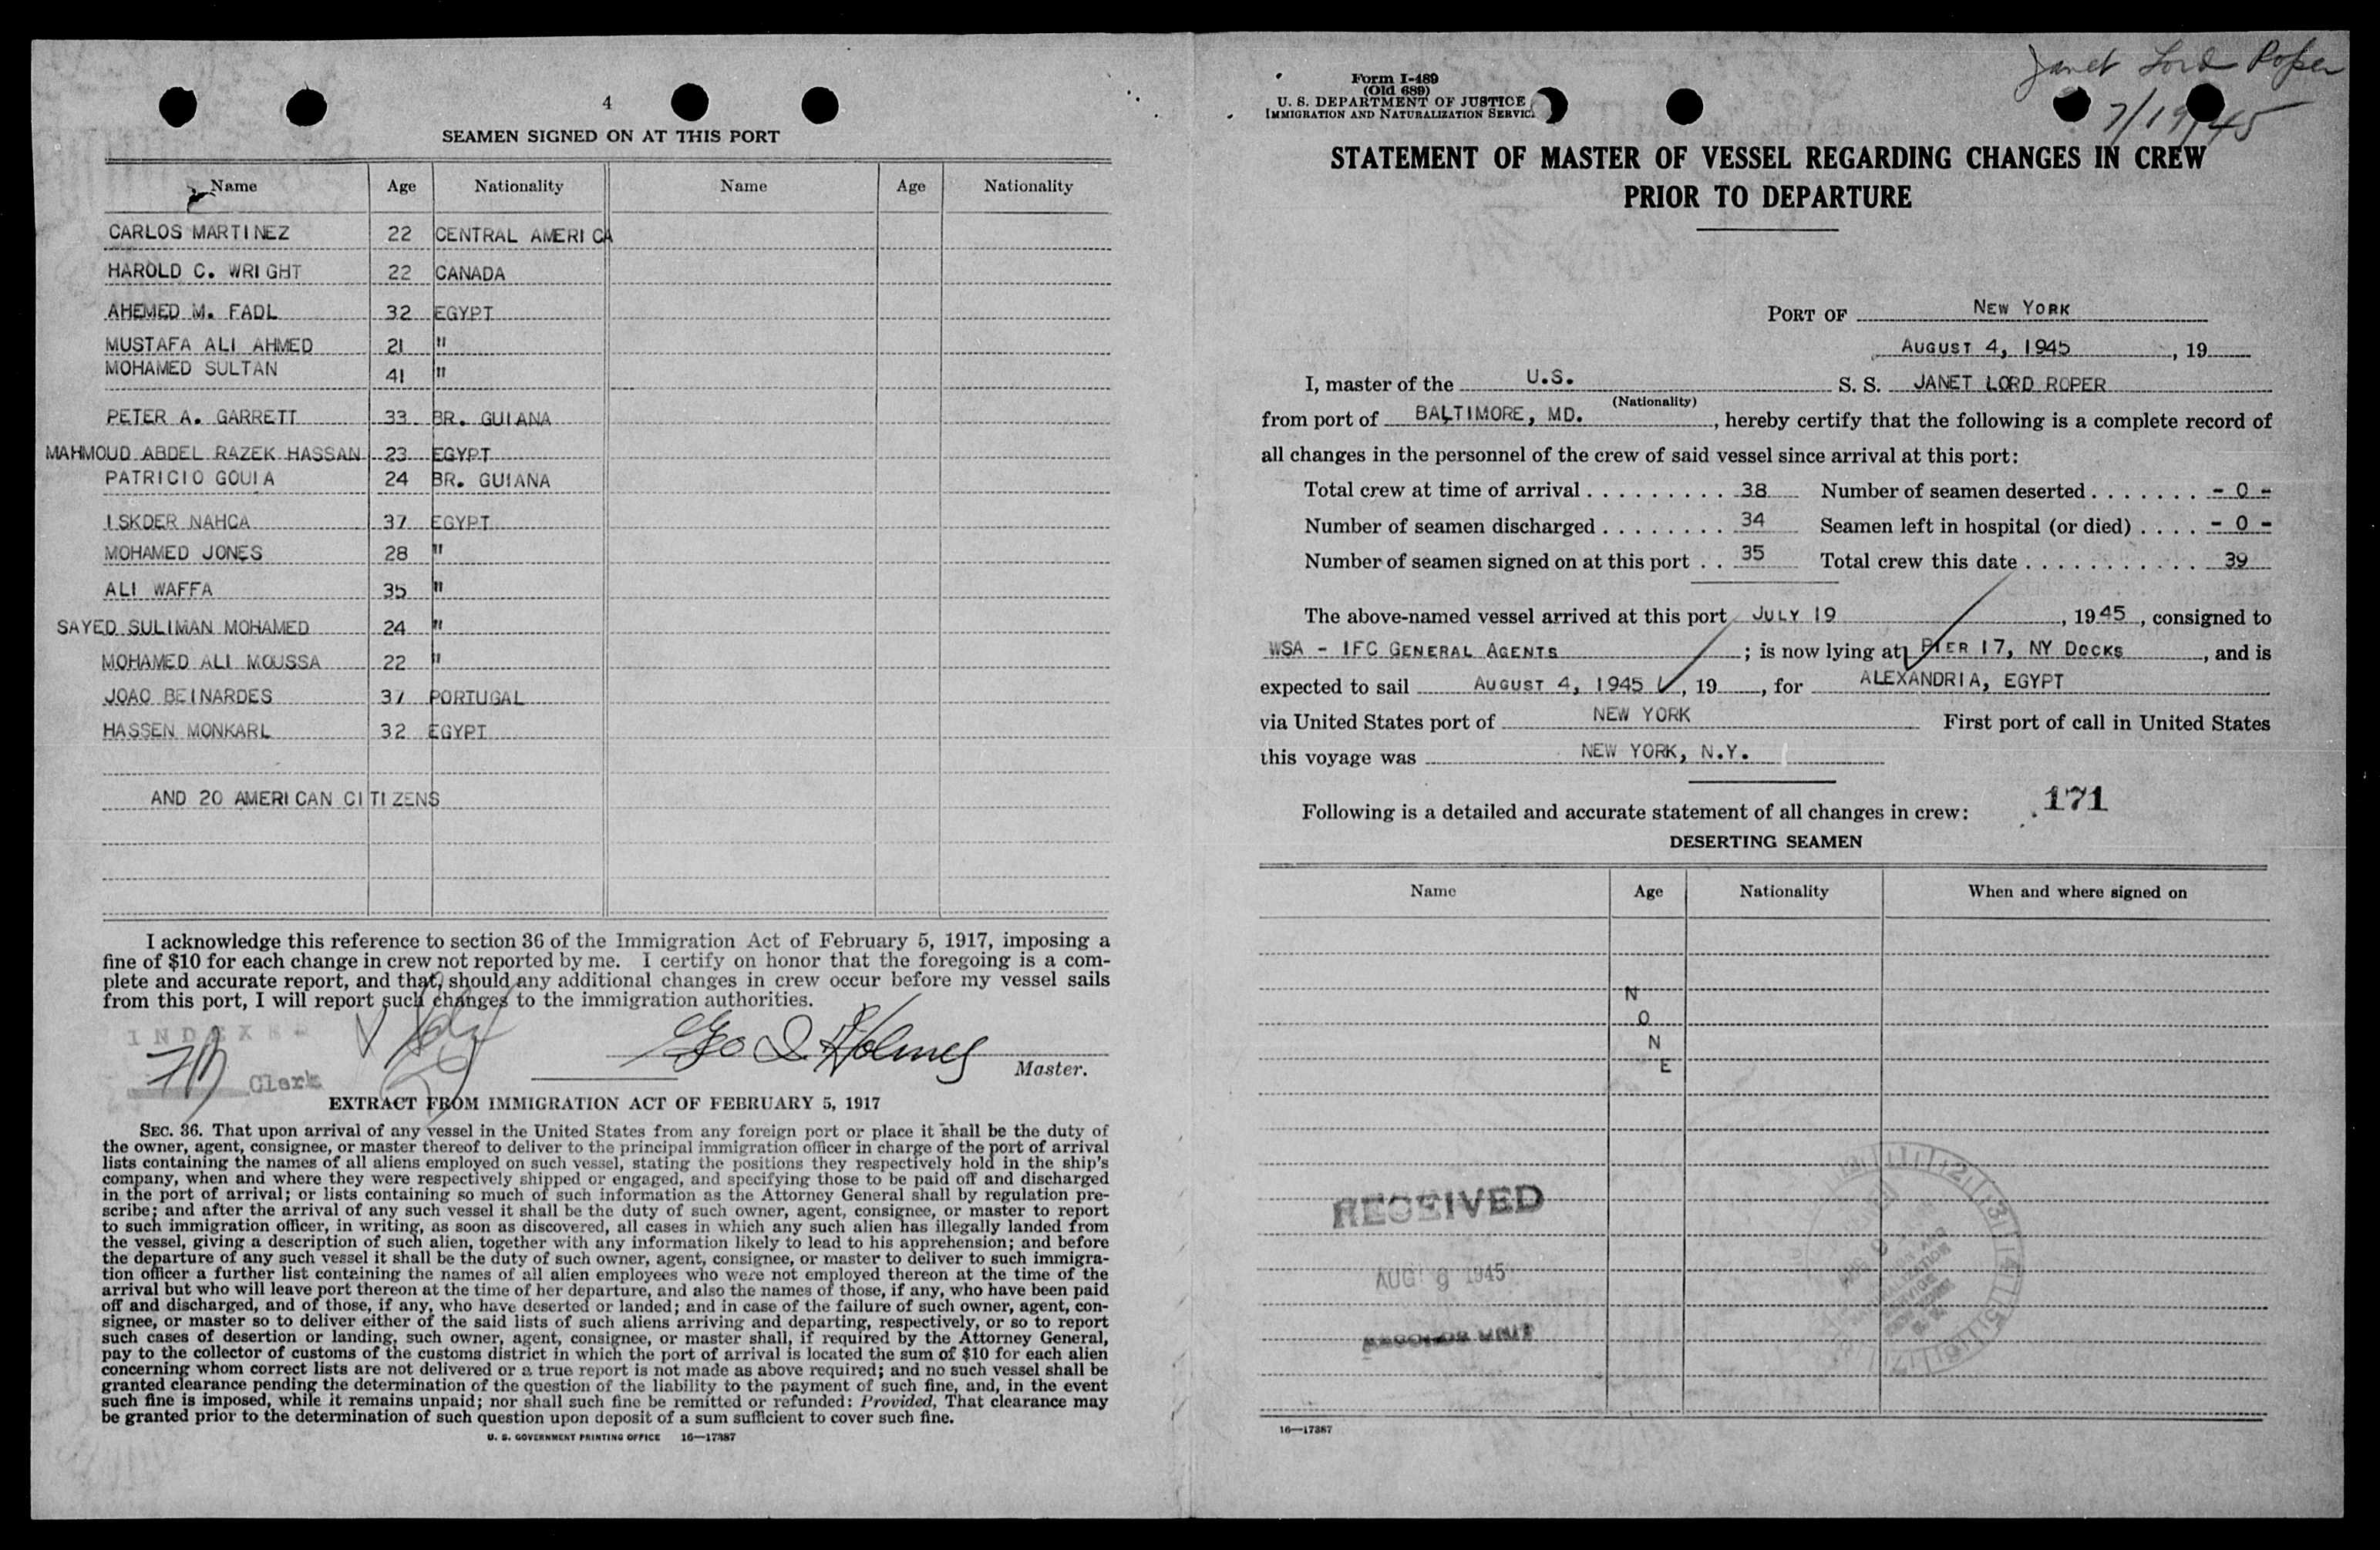 4
SEAMEN SIGNED ON AT THIS PORT
Name Age Nationality Name Age Nationality
CARLOS MARTINEZ 22 CENTRAL AMERICA
HAROLD C. WRIGHT 22 CANADA
AHEMED M. FADL 32 EGYPT
MUSTAFA ALI AHMED 21 "
MOHAMED SULTAN 41 "
PETER A. GARRETT 33 BR. GUIANA
MAHMOUD ABDEL RAZEK HASSAN 23 EGYPT
PATRICIO GOUIA 24 BR. GUIANA
ISKDER NAHCA 37 EGYPT
MOHAMED JONES 28 "
ALI WAFFA 35 "
SAYED SULIMAN MOHAMED 24 "
MOHAMED ALI MOUSSA 22 "
JOAO BEINARDES 37 PORTUGAL
HASSEN MONKARL 32 EGYPT
AND 20 AMERICAN CITIZENS
I acknowledge this reference to section 36 of the Immigration Act of February 5, 1917, imposing a
fine of $10 for each change in crew not reported by me. I certify on honor that the foregoing is a com-
plete and accurate report, and that, should any additional changes in crew occur before my vessel sails
from this port, I will report such changes to the immigration authorities.
INDEXED
Geo I. Holmes
Master.
Clerk
EXTRACT FROM IMMIGRATION ACT OF FEBRUARY 5, 1917
SEC. 36. That upon arrival of any vessel in the United States from any foreign port or place it shall be the duty of
the owner, agent, consignee, or master thereof to deliver to the principal immigration officer in charge of the port of arrival
lists containing the names of all aliens employed on such vessel, stating the positions they respectively hold in the ship's
company, when and where they were respectively shipped or engaged, and specifying those to be paid off and discharged
in the port of arrival; or lists containing so much of such information as the Attorney General shall by regulation pre-
scribe; and after the arrival of any such vessel it shall be the duty of such owner, agent, consignee, or master to report
to such immigration officer, in writing, as soon as discovered, all cases in which any such alien has illegally landed from
the vessel, giving a description of such alien, together with any information likely to lead to his apprehension; and before
the departure of any such vessel it shall be the duty of such owner, agent, consignee, or master to deliver to such immigra-
tion officer a further list containing the names of all alien employees who were not employed thereon at the time of the
arrival but who will leave port thereon at the time of her departure, and also the names of those, if any, who have been paid
off and discharged, and of those, if any, who have deserted or landed; and in case of the failure of such owner, agent, con-
signee, or master so to deliver either of the said lists of such aliens arriving and departing, respectively, or so to report
such cases of desertion or landing, such owner, agent, consignee, or master shall, if required by the Attorney General,
pay to the collector of customs of the customs district in which the port of arrival is located the sum of $10 for each alien
concerning whom correct lists are not delivered or a true report is not made as above required; and no such vessel shall be
granted clearance pending the determination of the question of the liability to the payment of such fine, and, in the event
such fine is imposed, while it remains unpaid; nor shall such fine be remitted or refunded: Provided, That clearance may
be granted prior to the determination of such question upon deposit of a sum sufficient to cover such fine.
U. S. GOVERNMENT PRINTING OFFICE 16—17387
Janet Lord Roper
7/19/45
Form I-489
(Old 689)
U. S. DEPARTMENT OF JUSTICE
IMMIGRATION AND NATURALIZATION SERVICE
STATEMENT OF MASTER OF VESSEL REGARDING CHANGES IN CREW
PRIOR TO DEPARTURE
PORT OF NEW YORK
AUGUST 4, 1945, 19
I, master of the U.S. S. S. JANET LORD ROPER
(Nationality)
from port of BALTIMORE, MD., hereby certify that the following is a complete record of
all changes in the personnel of the crew of said vessel since arrival at this port:
Total crew at time of arrival . . . . . . . . . 38 Number of seamen deserted . . . . . . . - 0 -
Number of seamen discharged . . . . . . . . 34 Seamen left in hospital (or died) . . . . - 0 -
Number of seamen signed on at this port . . 35 Total crew this date . . . . . . . . . . . 39
The above-named vessel arrived at this port JULY 19, 1945, consigned to
WSA - IFC GENERAL AGENTS; is now lying at PIER 17, NY DOCKS, and is
expected to sail AUGUST 4, 1945, 19, for ALEXANDRIA, EGYPT
via United States port of NEW YORK First port of call in United States
this voyage was NEW YORK, N.Y.
Following is a detailed and accurate statement of all changes in crew: 171
DESERTING SEAMEN
Name Age Nationality When and where signed on
N
O
N
E
RECEIVED
AUG 9 1945
RECORDS UNIT
16—17387